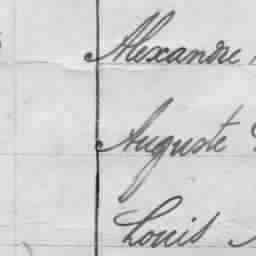 Alexandre
Auguste
Louis